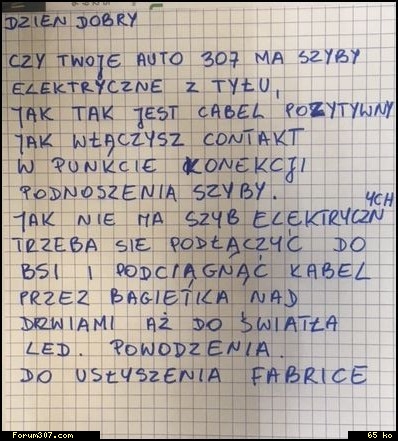 DZIEN DOBRY
CZY TWOJE AUTO 307 MA SZYBY
ELEKTRYCZNE Z TYŁU,
JAK TAK JEST CABEL POZYTYWNY
JAK WŁĄCZYSZ CONTAKT
W PUNKCIE KONEKCJI
PODNOSZENIA SZYBY.
JAK NIE MA SZYB ELEKTRYCZNYCH
TRZEBA SIE PODŁĄCZYĆ DO
BSI I PODCIĄGNĄĆ KABEL
PRZEZ BAGIETKA NAD
DRZWIAMI AŻ DO ŚWIATŁA
LED. POWODZENIA.
DO USŁYSZENIA FABRICE
Forum307.com 65 ko